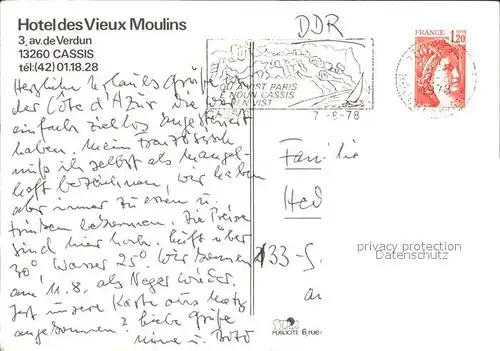 Hotel des Vieux Moulins
3, av. de Verdun
13260 CASSIS
tél: (42) 01.18.28
DDR
FRANCE
1,20
QU'A VIST PARIS
E NOUN CASSIS
REN VIST
7-8-78
1978
Herzliche Urlaubsgrüße von
der Côte d'Azur, die wir
einfach ziellos angesteuert
haben. Mein Französisch
muß ich selbst als mangel-
haft bezeichnen, wir haben
aber immer zu essen u.
trinken bekommen. Die Preise
sind hier hoch. Luft über
30° Wasser 25°. Wir kommen
am 11.8. als Neger wieder.
Ist unsere Karte aus Metz
angekommen? Liebe Grüße
u.
Familie
133-5
privacy protection
Datenschutz
PUBLICITÉ 6, rue